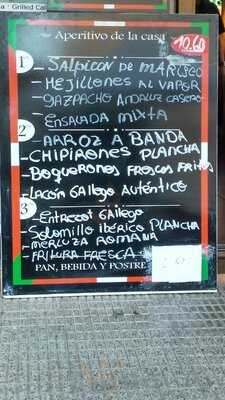 a · Grilled Cal
Aperitivo de la casa
10.60
1 SALPICÓN DE MARISCO
- MEJILLONES AL VAPOR
GAZPACHO ANDALUZ CASERO
- ENSALADA MIXTA
2 - ARROZ A BANDA
- CHIPIRONES PLANCHA
- BOQUERONES FRESCOS FRITOS
- LACÓN GALLEGO AUTÉNTICO
3 - ENTRECOT GALLEGO
- SOLOMILLO IBÉRICO PLANCHA
- MERLUZA ROMANA
- FRITURA FRESCA
PAN, BEBIDA Y POSTRE